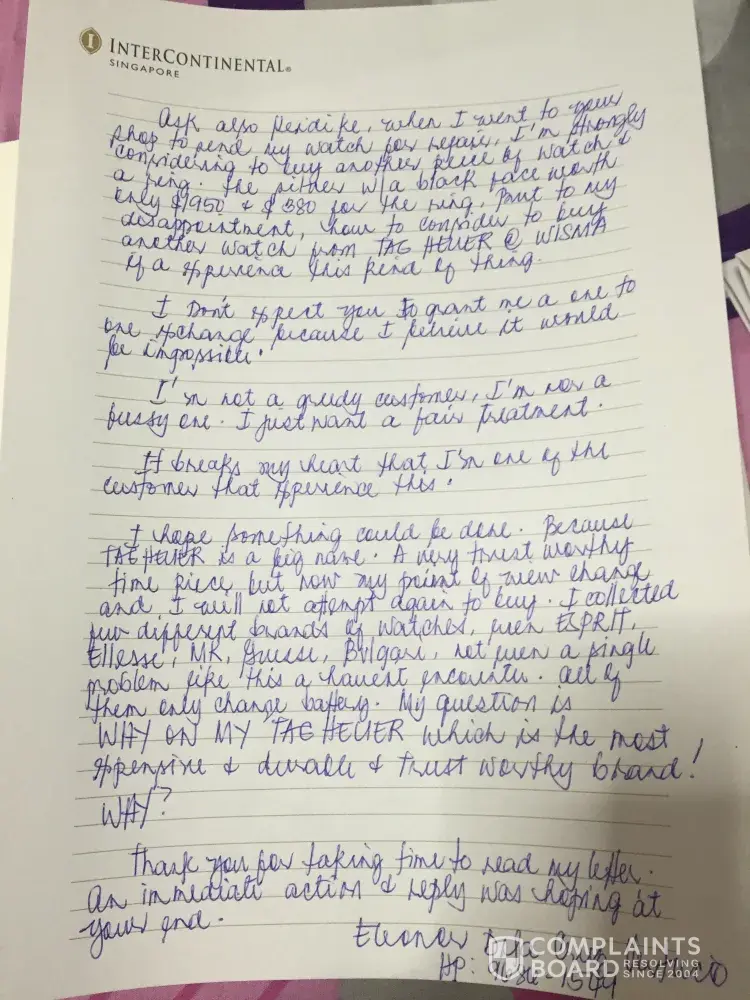 INTERCONTINENTAL®
SINGAPORE
Ask also Kendike, when I went to your
shop to send my watch for repair, I'm strongly
considering to buy another piece of watch &
a ring. The either w/a black face worth
only $1950 & $380 for the ring. But to my
disappointment, how to consider to buy
another watch from TAG HEUER @ WISMA
if a xperience this kind of thing.
I Don't xpect you to grant me a one to
one xchange because I believe it would
be impossible.
I'm not a greedy customer, I'm not a
fussy one. I just want a fair treatment.
It breaks my heart that I'm one of the
customer that xperience this.
I hope something could be done. Because
TAG HEUER is a big name. A very trust worthy
time piece but now my point of view change
and I will not attempt again to buy. I collected
few different brands of watches, even ESPRIT,
Ellesse, MK, Guess, Bvlgari, not even a single
problem like this a havent encounter. All of
them only change battery. My question is
WHY ON MY TAG HEUER which is the most
xpensive & durable & trust worthy brand!
WHY?
Thank you for taking time to read my letter.
An immediate action & reply was hoping at
your end.
Eleonor
HP:
COMPLAINTS
BOARD RESOLVING
SINCE 2004